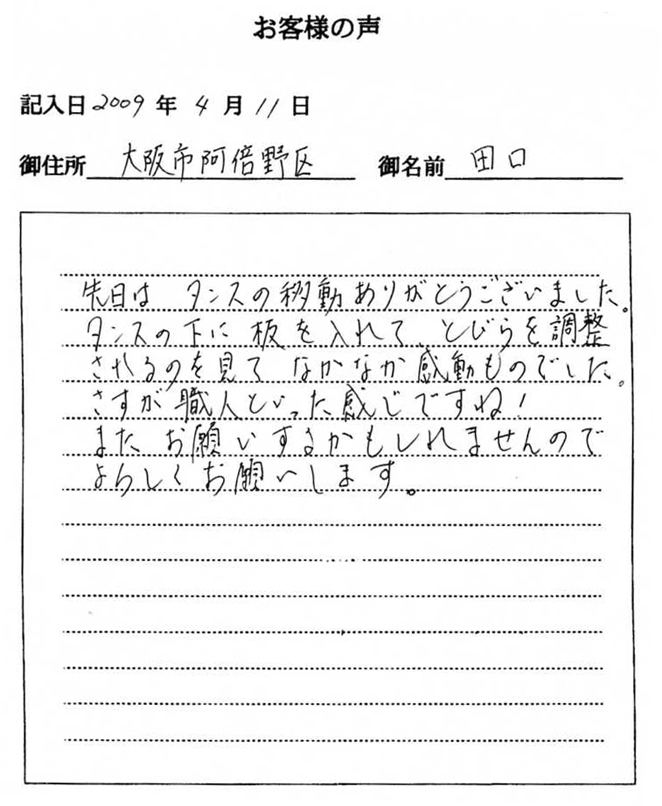 お客様の声
記入日 2009 年 4 月 11 日
御住所 大阪市阿倍野区 御名前 田口
先日は タンスの移動ありがとうございました。
タンスの下に 板を入れて、とびらを調整
されるのを見て なかなか感動ものでした。
さすが職人といった感じですね!
また お願いするかもしれませんので
よろしくお願いします。